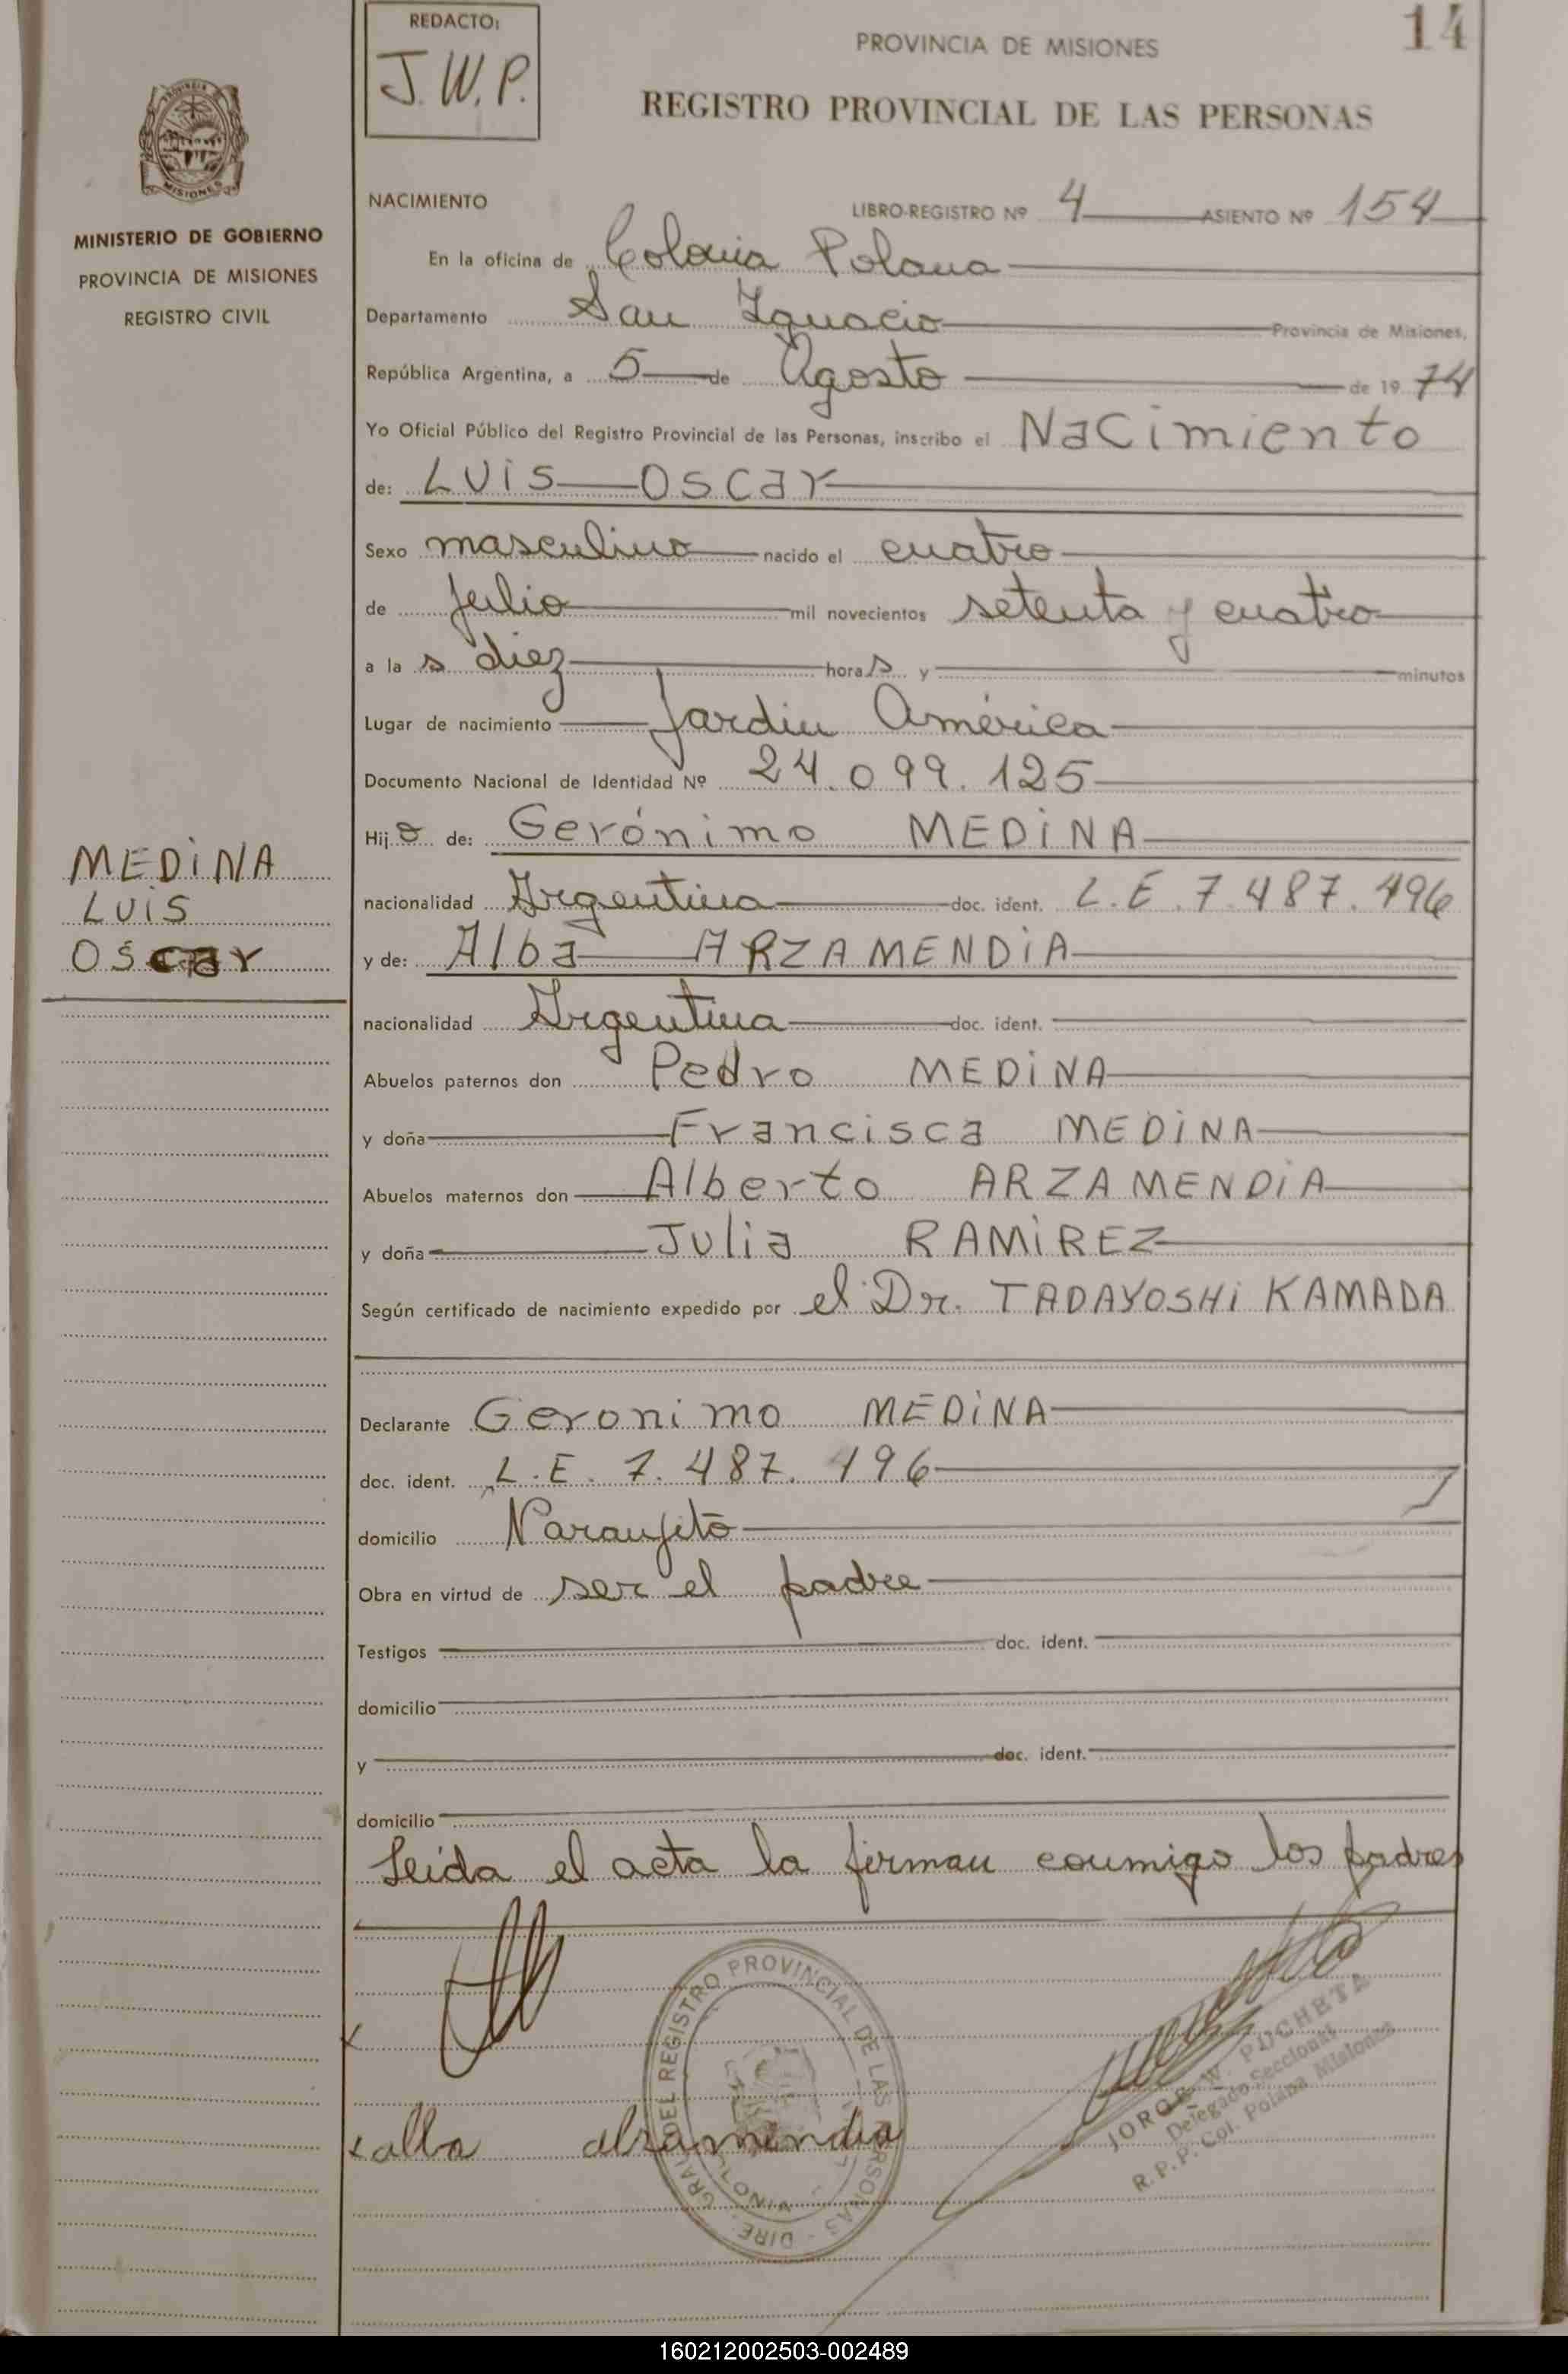 REDACTO:
J.W.P.
14
PROVINCIA DE MISIONES
REGISTRO PROVINCIAL DE LAS PERSONAS
MISIONES
MINISTERIO DE GOBIERNO
PROVINCIA DE MISIONES
REGISTRO CIVIL
NACIMIENTO
LIBRO-REGISTRO Nº 4 ASIENTO Nº 154
En la oficina de Colonia Polana
Departamento San Ignacio Provincia de Misiones,
República Argentina, a 5 de Agosto de 19 74
Yo Oficial Público del Registro Provincial de las Personas, inscribo el Nacimiento
de: LUIS OSCAR
Sexo masculino nacido el cuatro
de julio mil novecientos setenta y cuatro
a las diez horas y minutos
Lugar de nacimiento Jardin América
Documento Nacional de Identidad Nº 24.099.125
Hijo de: Gerónimo MEDINA
MEDINA
LUIS
OSCAR
nacionalidad Argentina doc. ident. L.E. 7.487.496
y de: Alba ARZAMENDIA
nacionalidad Argentina doc. ident.
Abuelos paternos don Pedro MEDINA
y doña Francisca MEDINA
Abuelos maternos don Alberto ARZAMENDIA
y doña Julia RAMIREZ
Según certificado de nacimiento expedido por el Dr. TADAYOSHI KAMADA
Declarante Geronimo MEDINA
doc. ident. L.E. 7.487.496
domicilio Naranjito
Obra en virtud de ser el padre
Testigos doc. ident.
domicilio
y doc. ident.
domicilio
Leida el acta la firman conmigo los padres
x
x alba alsamendia
GRAL DEL REGISTRO PROVINCIAL DE LAS PERSONAS - DIRE.
JORGE W. PUCHETA
Delegado Seccional
R.P.P. Col. Polana Misiones
160212002503-002489